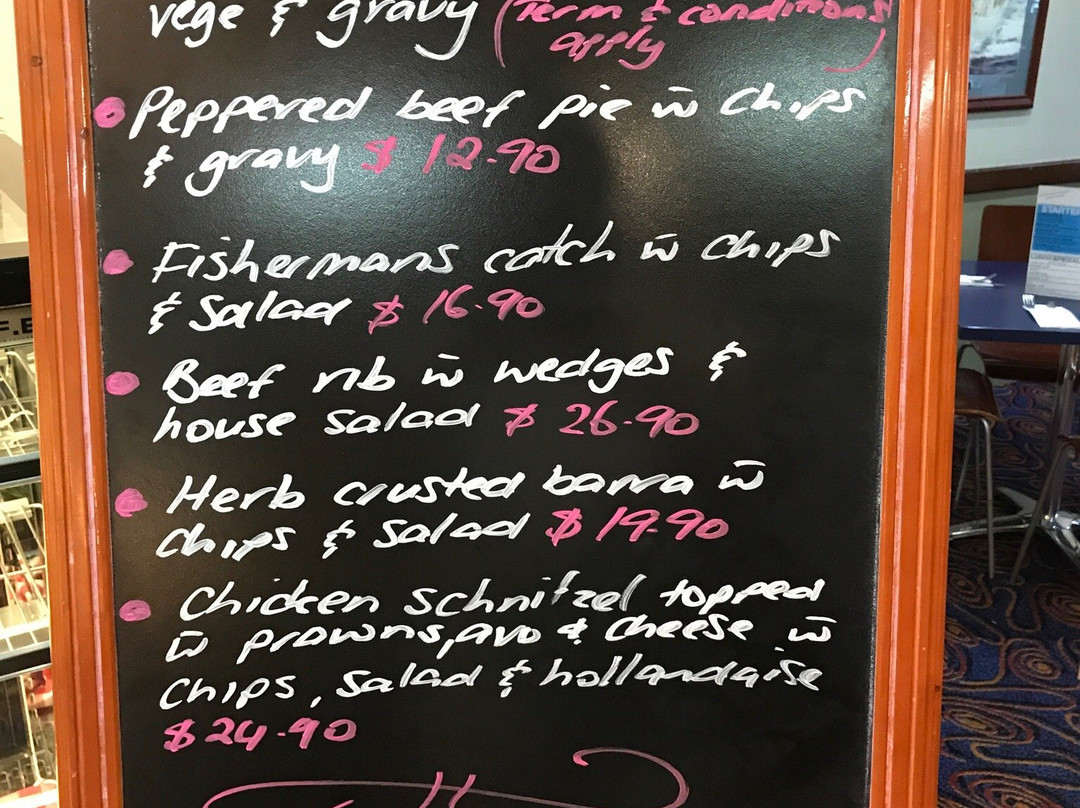 vege & gravy (Term & conditions
apply )
Peppered beef pie w̄ chips
& gravy $12.90
Fishermans catch w̄ chips
& Salad $16.90
Beef rib w̄ wedges &
house salad $26.90
Herb crusted barra w̄
chips & salad $19.90
Chicken schnitzel topped
w̄ prawns, avo & cheese w̄
chips, salad & hollandaise
$24.90
STARTER